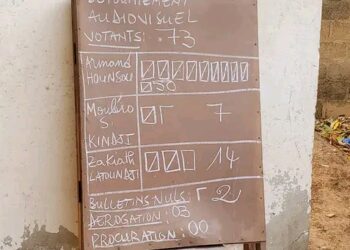 DEPOUILLEMENT
AUDIOVISUEL
VOTANTS: 73
Armand
HOUNSOU
50
Mouléro
S.
KINADJI
7
Zakiath
LATOUNDJI
14
BULLETINS NULS: 2
DEROGATION: 03
PROCURATION: 00